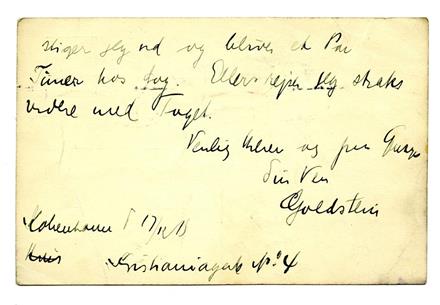 stiger jeg ud og bliver et Par
Timer hos dog. Ellers rejser jeg straks
videre med Toget.
Venlig Hilsen og paa Gensyn
din Ven
Goldstein
København d 17/12 18
Kristianiagade No. 4